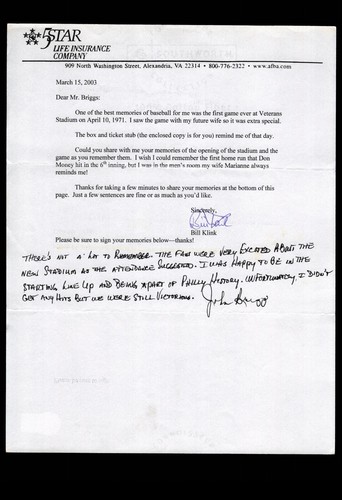 5STAR
LIFE INSURANCE
COMPANY
909 North Washington Street, Alexandria, VA 22314 • 800-776-2322 • www.afba.com
March 15, 2003
Dear Mr. Briggs:
One of the best memories of baseball for me was the first game ever at Veterans
Stadium on April 10, 1971. I saw the game with my future wife so it was extra special.
The box and ticket stub (the enclosed copy is for you) remind me of that day.
Could you share with me your memories of the opening of the stadium and the
game as you remember them. I wish I could remember the first home run that Don
Money hit in the 6th inning, but I was in the men's room my wife Marianne always
reminds me!
Thanks for taking a few minutes to share your memories at the bottom of this
page. Just a few sentences are fine or as much as you'd like.
Sincerely,
Bill Klink
Please be sure to sign your memories below—thanks!
THERE'S NOT A LOT TO REMEMBER. THE FANS WERE VERY EXCITED ABOUT THE
NEW STADIUM AS THE ATTENDANCE SUGGESTED. I WAS HAPPY TO BE IN THE
STARTING LINE UP AND BEING A PART OF PHILLY HISTORY. UNFORTUNATELY, I DIDN'T
GET ANY HITS BUT WE WERE STILL VICTORIOUS. John Briggs